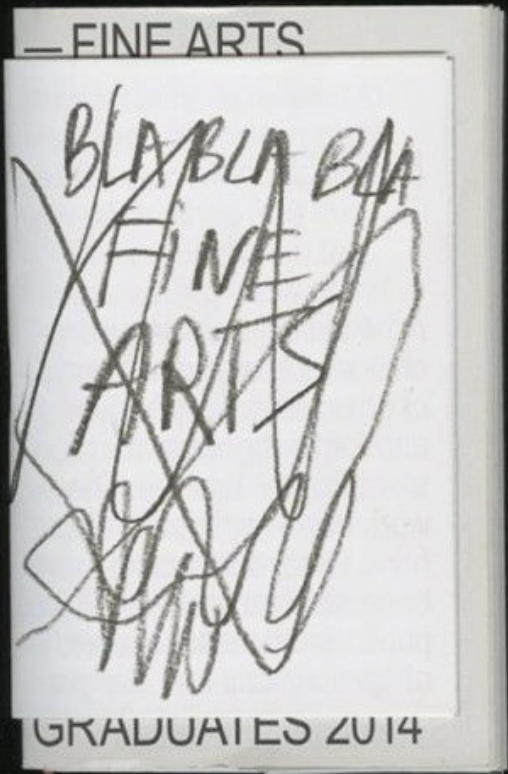 — FINE ARTS
BLA BLA BLA
FINE
ARTS
GRADUATES 2014